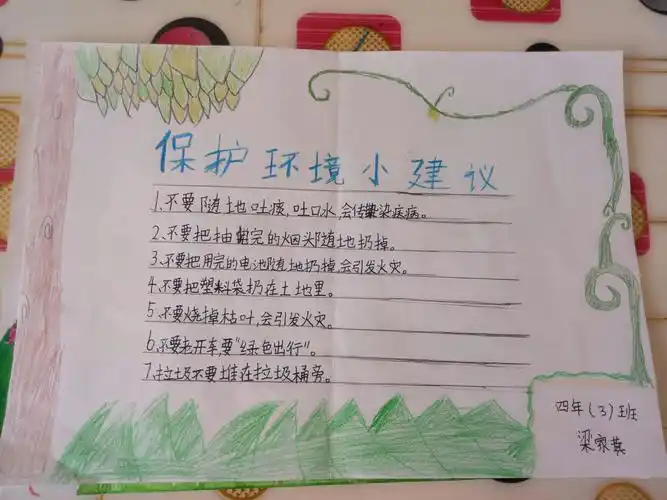 保护环境小建议
1.不要随地吐痰,吐口水,会传染疾病。
2.不要把抽完的烟头随地扔掉。
3.不要把用完的电池随地扔掉,会引发火灾。
4.不要把塑料袋扔在土地里。
5.不要烧掉枯叶,会引发火灾。
6.不要老开车,要“绿色出行”。
7.垃圾不要堆在垃圾桶旁。
四年(3)班
梁家